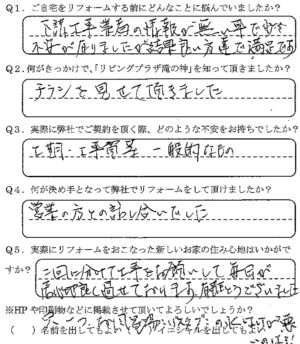 Q1. ご自宅をリフォームする前にどんなことに悩んでいましたか?
下請工事業者の情報が無い事で少々
不安が有りましたが結果良い方達で満足です
Q2. 何がきっかけで、「リビングプラザ滝の神」を知って頂きましたか?
チラシを見せて頂きました
Q3. 実際に弊社でご契約を頂く際、どのような不安をお持ちでしたか?
工期・工事費等 一般的なもの
Q4. 何が決め手となって弊社でリフォームをして頂けましたか?
営業の方との話し合いでした
Q5. 実際にリフォームをおこなった新しいお家の住み心地はいかがで
すか?
二回に分けて工事をお願いして毎日が
居心地良く過せております。有難とうございました
※HPや印刷物などに掲載させて頂いてよろしいでしょうか?
( )名前を出してもよい ( )イニシャルを出してもよい